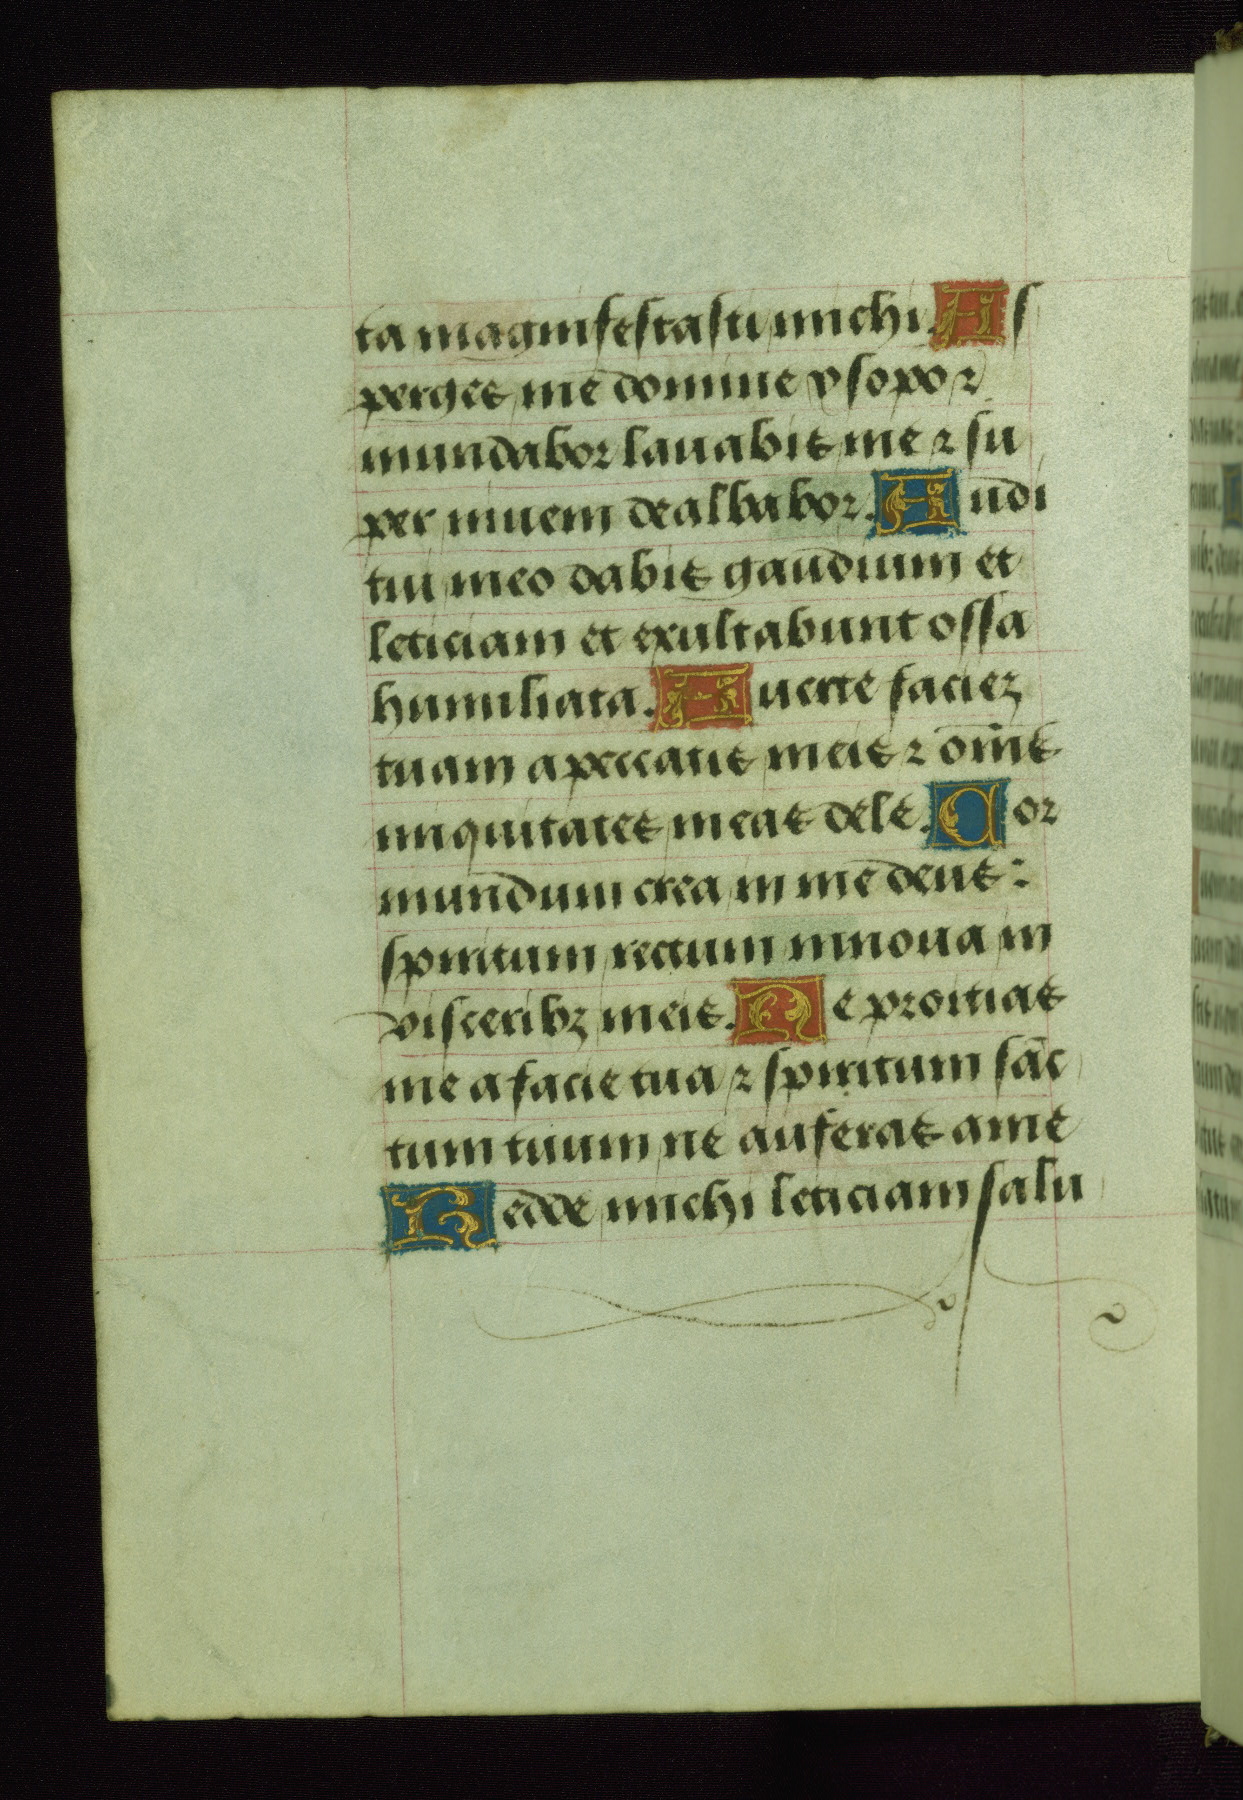 ta magnifestasti michi. As
perges me domine ysopo ⁊
mundabor lauabis me ⁊ su
per niuem dealbabor. Audi
tui meo dabis gaudium et
leticiam et exultabunt ossa
humiliata. Auerte facieꝫ
tuam a peccatis meis ⁊ om̄s
iniquitates meas dele. Cor
mundum crea in me deus:
spiritum rectum innoua in
visceribꝫ meis. Ne proitias
me a facie tua ⁊ spiritum sāc
tum tuum ne auferas a me
Redde michi leticiam salu